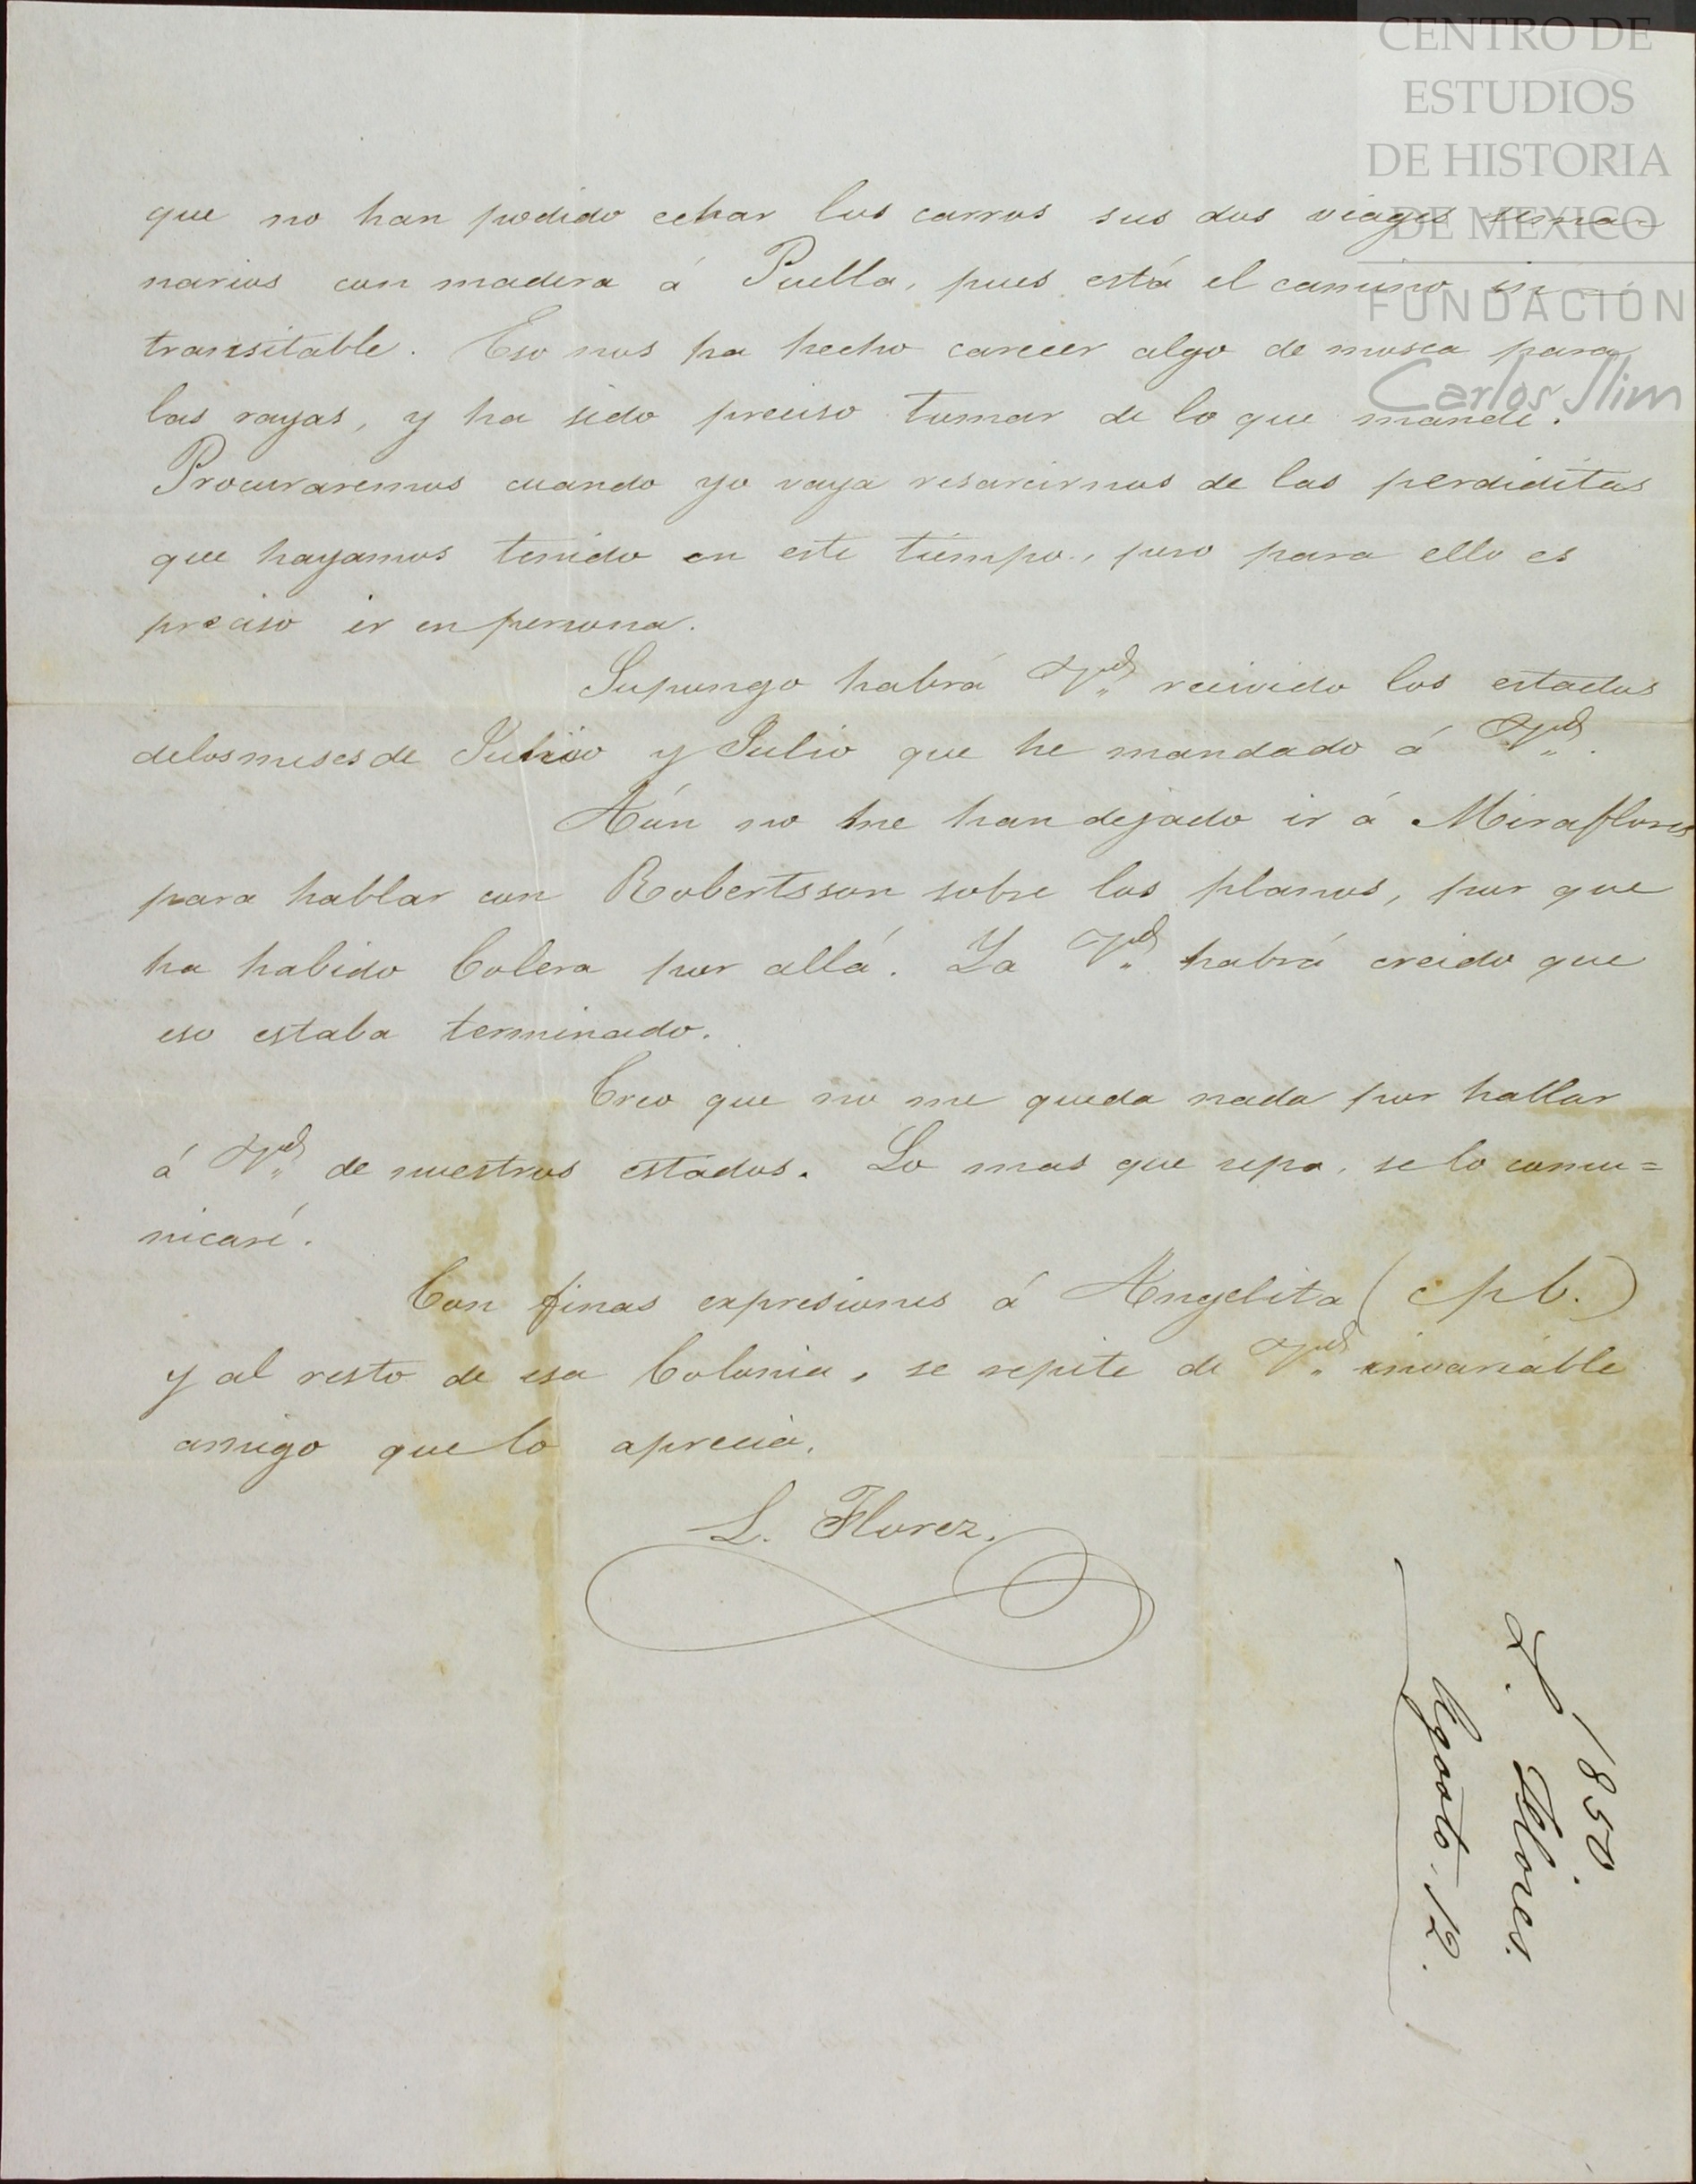 CENTRO DE
ESTUDIOS
DE HISTORIA
DE MÉXICO
FUNDACIÓN
Carlos Slim
que no han podido echar los carros sus dos viages sema-
narios con madera á Puebla, pues está el camino in-
transitable. Eso nos ha hecho carecer algo de mosca para
las rayas, y ha sido preciso tomar de lo que mandé.
Procuraremos cuando yo vaya resarcirnos de las perdiditas
que hayamos tenido en este tiempo, pero para ello es
preciso ir en persona.
Supongo habrá Vd. recivido los estados
de los meses de Junio y Julio que he mandado á Vd.
Aún no me han dejado ir á Miraflores
para hablar con Robertsson sobre los planos, por que
ha habido Colera por allá. Ya Vd. habrá creido que
eso estaba terminado.
Creo que no me queda nada por hablar
á Vd. de nuestros estados. Lo mas que sepa, se lo comu=
nicaré.
Con finas expresiones á Angelita (cpb.)
y al resto de esa Colonia, se repite de Vd. invariable
amigo que lo aprecia,
L. Florez.
1850.
L. Flores.
Agosto. 12.